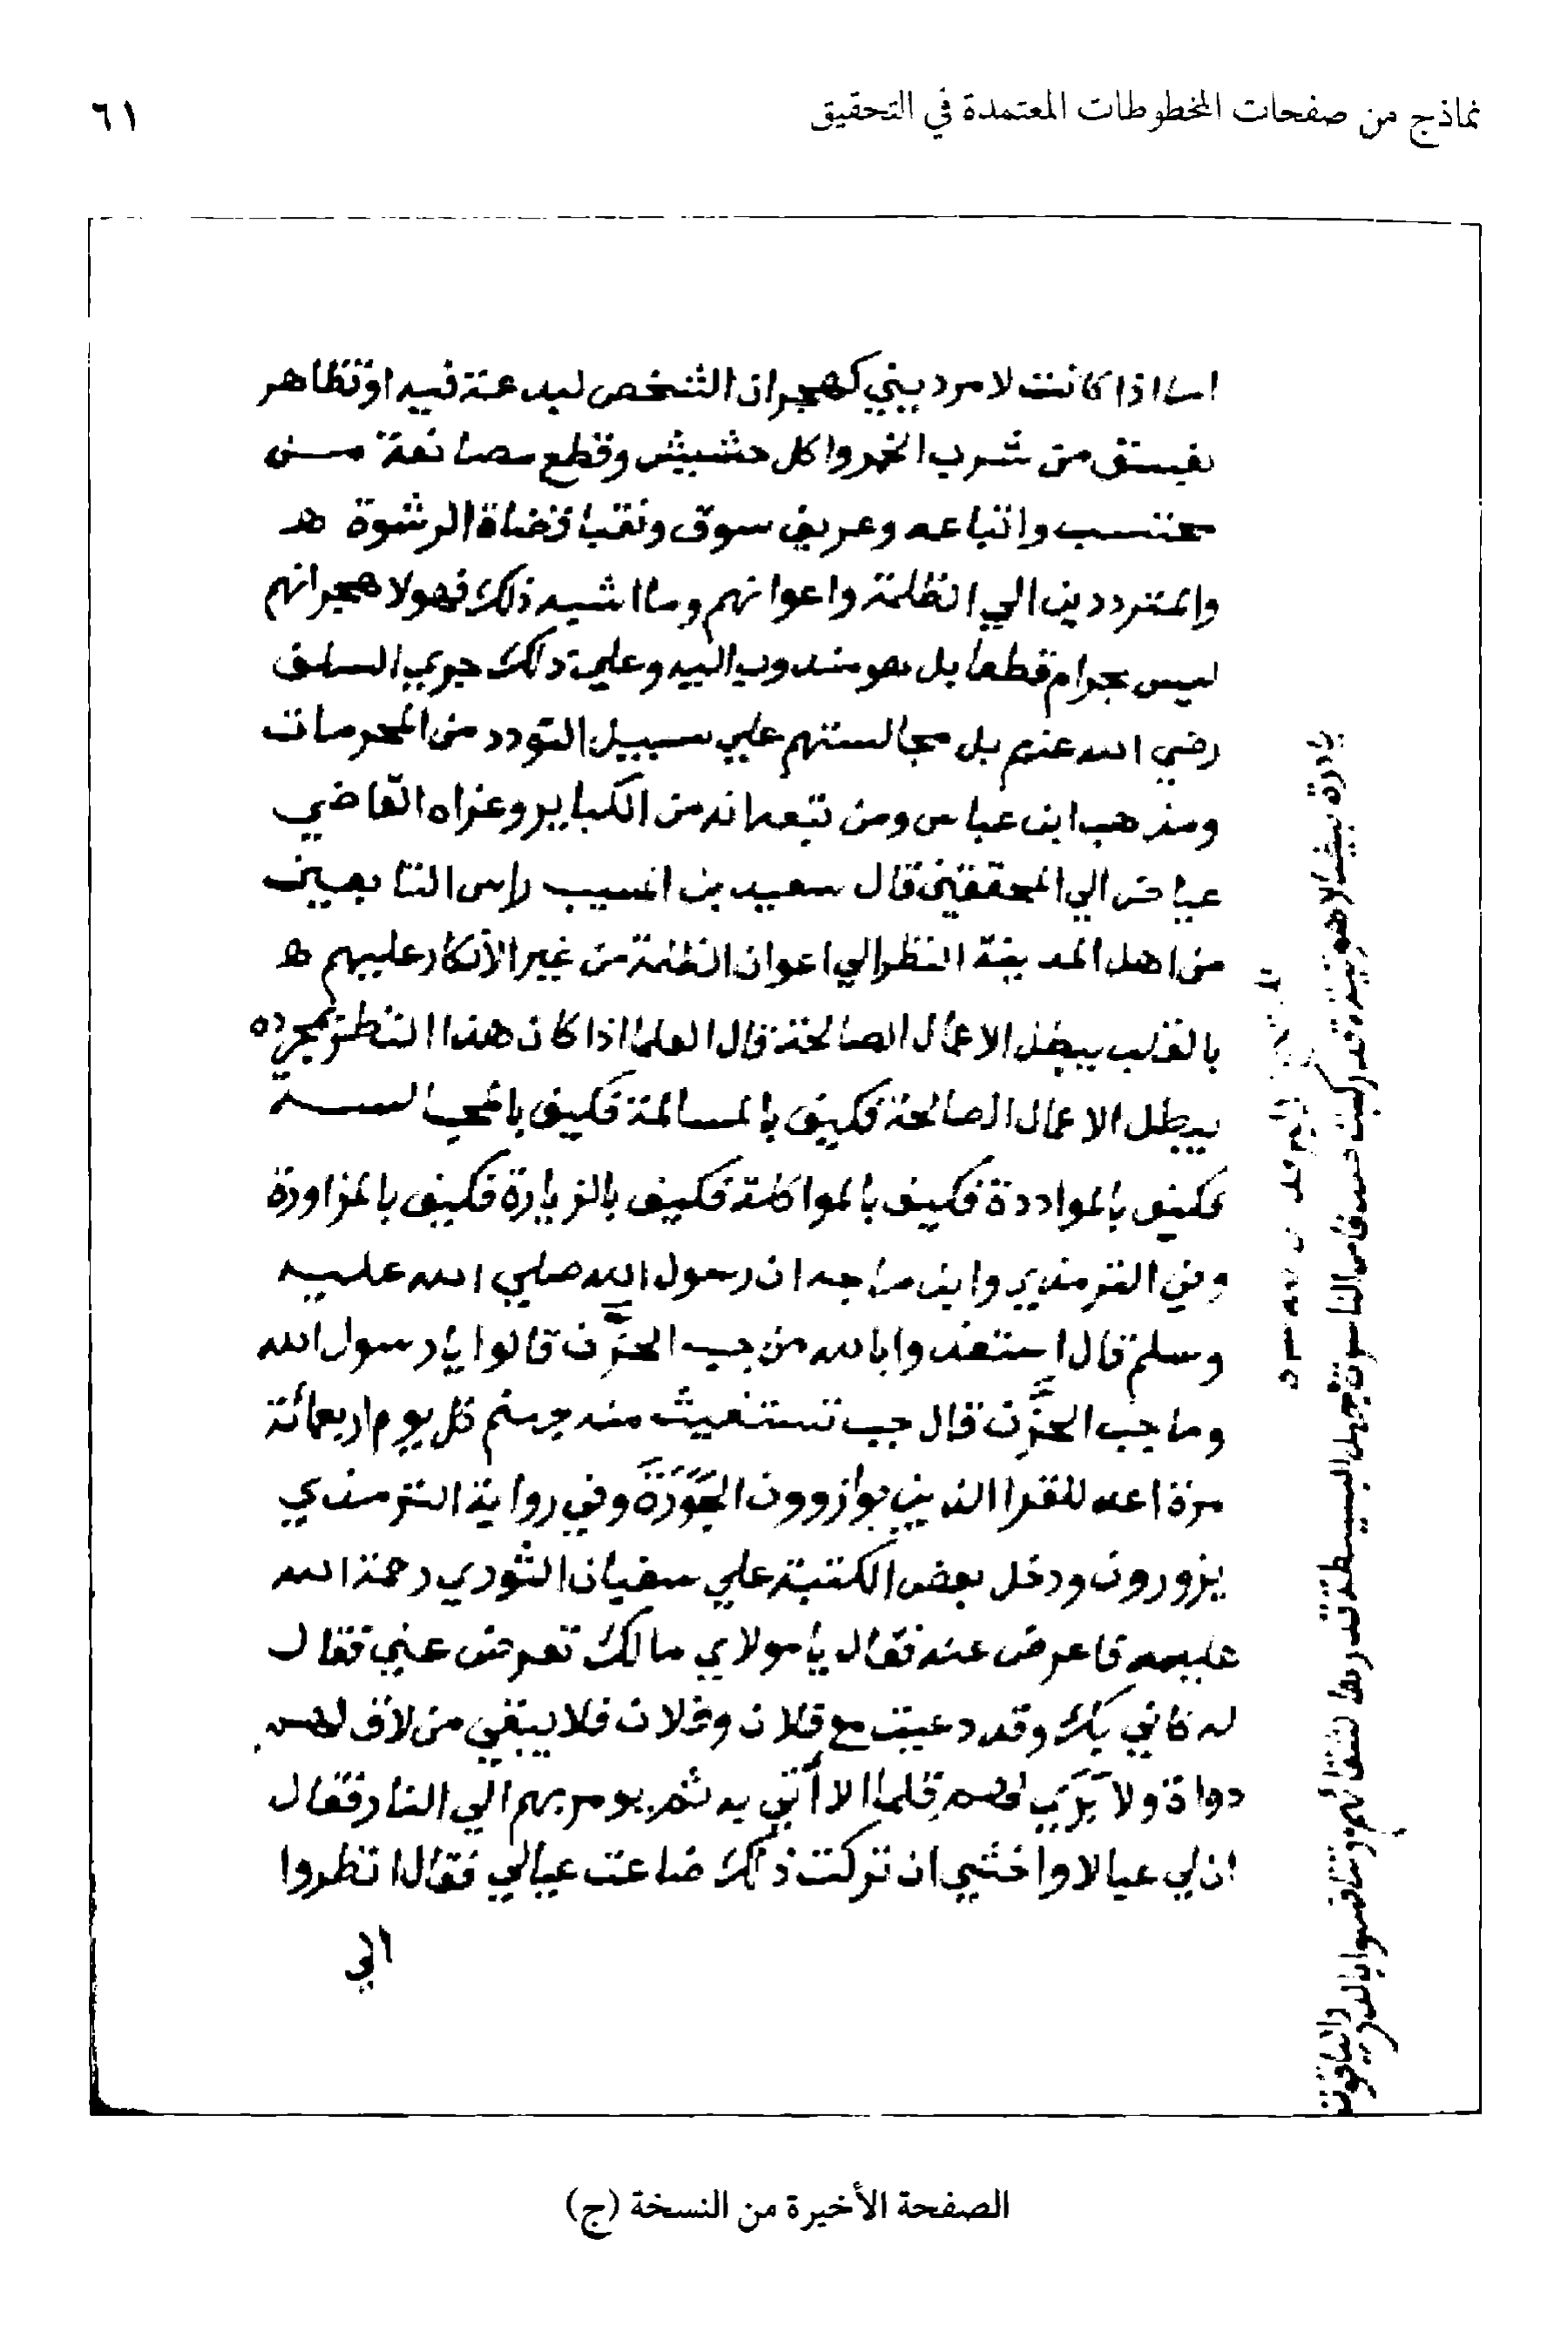 نماذج من صفحات المخطوطات المعتمدة في التحقيق
٦١
اما اذا كانت لامر ديني كهجران الشخص لبدعة فيه او تظاهر
بفسق من شرب الخمر واكل حشيش وقطع مصانعة مــن
محتسب واتباعه وعريف سوق ونقبا قضاة الرشوة هـ
والمترددين الي الظلمة واعوانهم وما اشبه ذلك فهولا هجرانهم
ليس بحرام قطعا بل هو مندوب اليه وعلي ذلك جري السلف
رضي الله عنهم بل مجالستهم علي سبيل التودد من المحرمات
ومذهب ابن عباس ومن تبعه انه من الكباير وعزاه القاضي
عياض الي المحققين قال سعيد بن المسيب راس التابعين
من اهل المدينة النظر الي اعوان الظلمة من غير الانكار عليهم هـ
بالقلب يبطل الاعمال الصالحة قال العلما اذا كان هذا النظر بمجرده
يبطل الاعمال الصالحة فكيف بالمسالمة فكيف بالمجالســة
فكيف بالمواددة فكيف بالمواكلة فكيف بالزيارة فكيف بالمزاورة
وفي الترمذي وابن ماجه ان رسول الله صلي الله عليه
وسلم قال استعذوا بالله من جب الحزن قالوا يا رسول الله
وما جب الحزن قال جب تستغيث منه جهنم كل يوم اربعمائة
مرة اعد للقرا الذين يوازرون الجَوَرَةَ وفي رواية الترمذي
يزورون ودخل بعض الكتبة علي سفيان الثوري رحمة الله
عليه فاعرض عنه فقال يا مولاي مالك تعرض عني فقال
له كاني بك وقد دعيت مع فلان وفلان فلا يبقي من لاق لهم
دواة ولا بَرَي لهم قلما الا أتي به ثم يومر بهم الي النار فقال
ان لي عيالا واخشي ان تركت ذلك ضاعت عيالي فقال انظروا
الي
الصفحة الأخيرة من النسخة (ج)